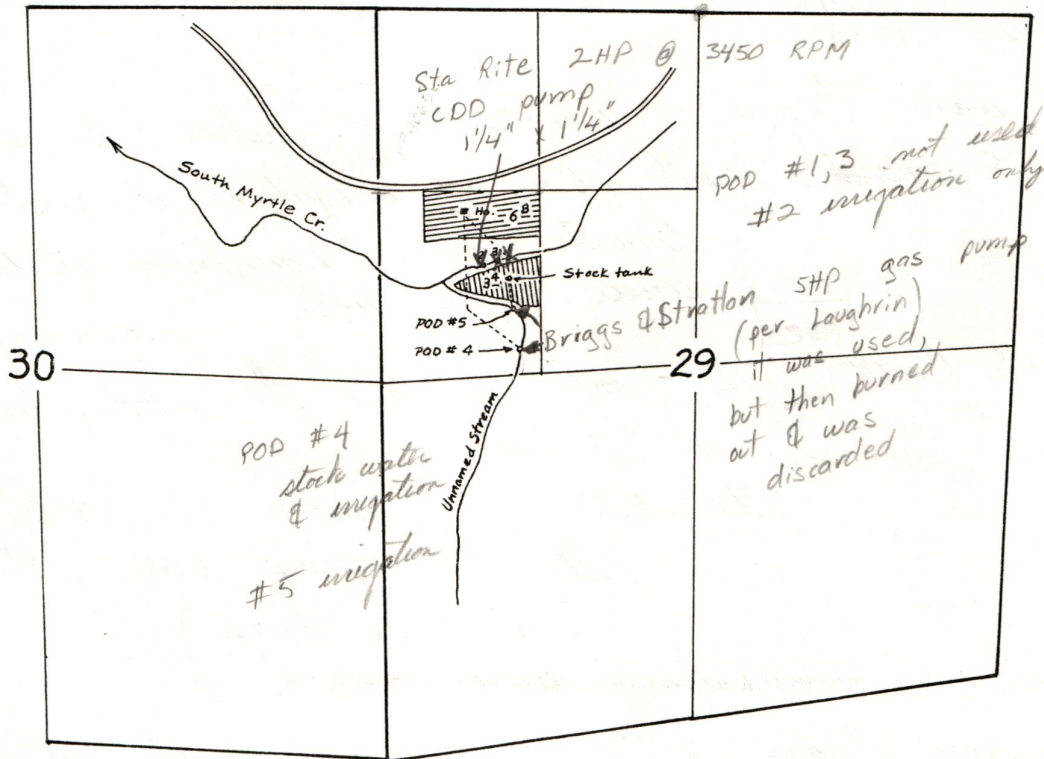 Sta Rite 2HP @ 3450 RPM
CDD pump
1 1/4" x 1 1/4"
South Myrtle Cr.
POD #1, 3 not used
#2 irrigation only
Ho. 6 8
3 4
Stock tank
POD #5
POD #4
Briggs & Stratton 5HP gas pump
(per Laughrin)
it was used,
but then burned
out & was
discarded
30
29
Unnamed Stream
POD #4
stock water
& irrigation
#5 irrigation